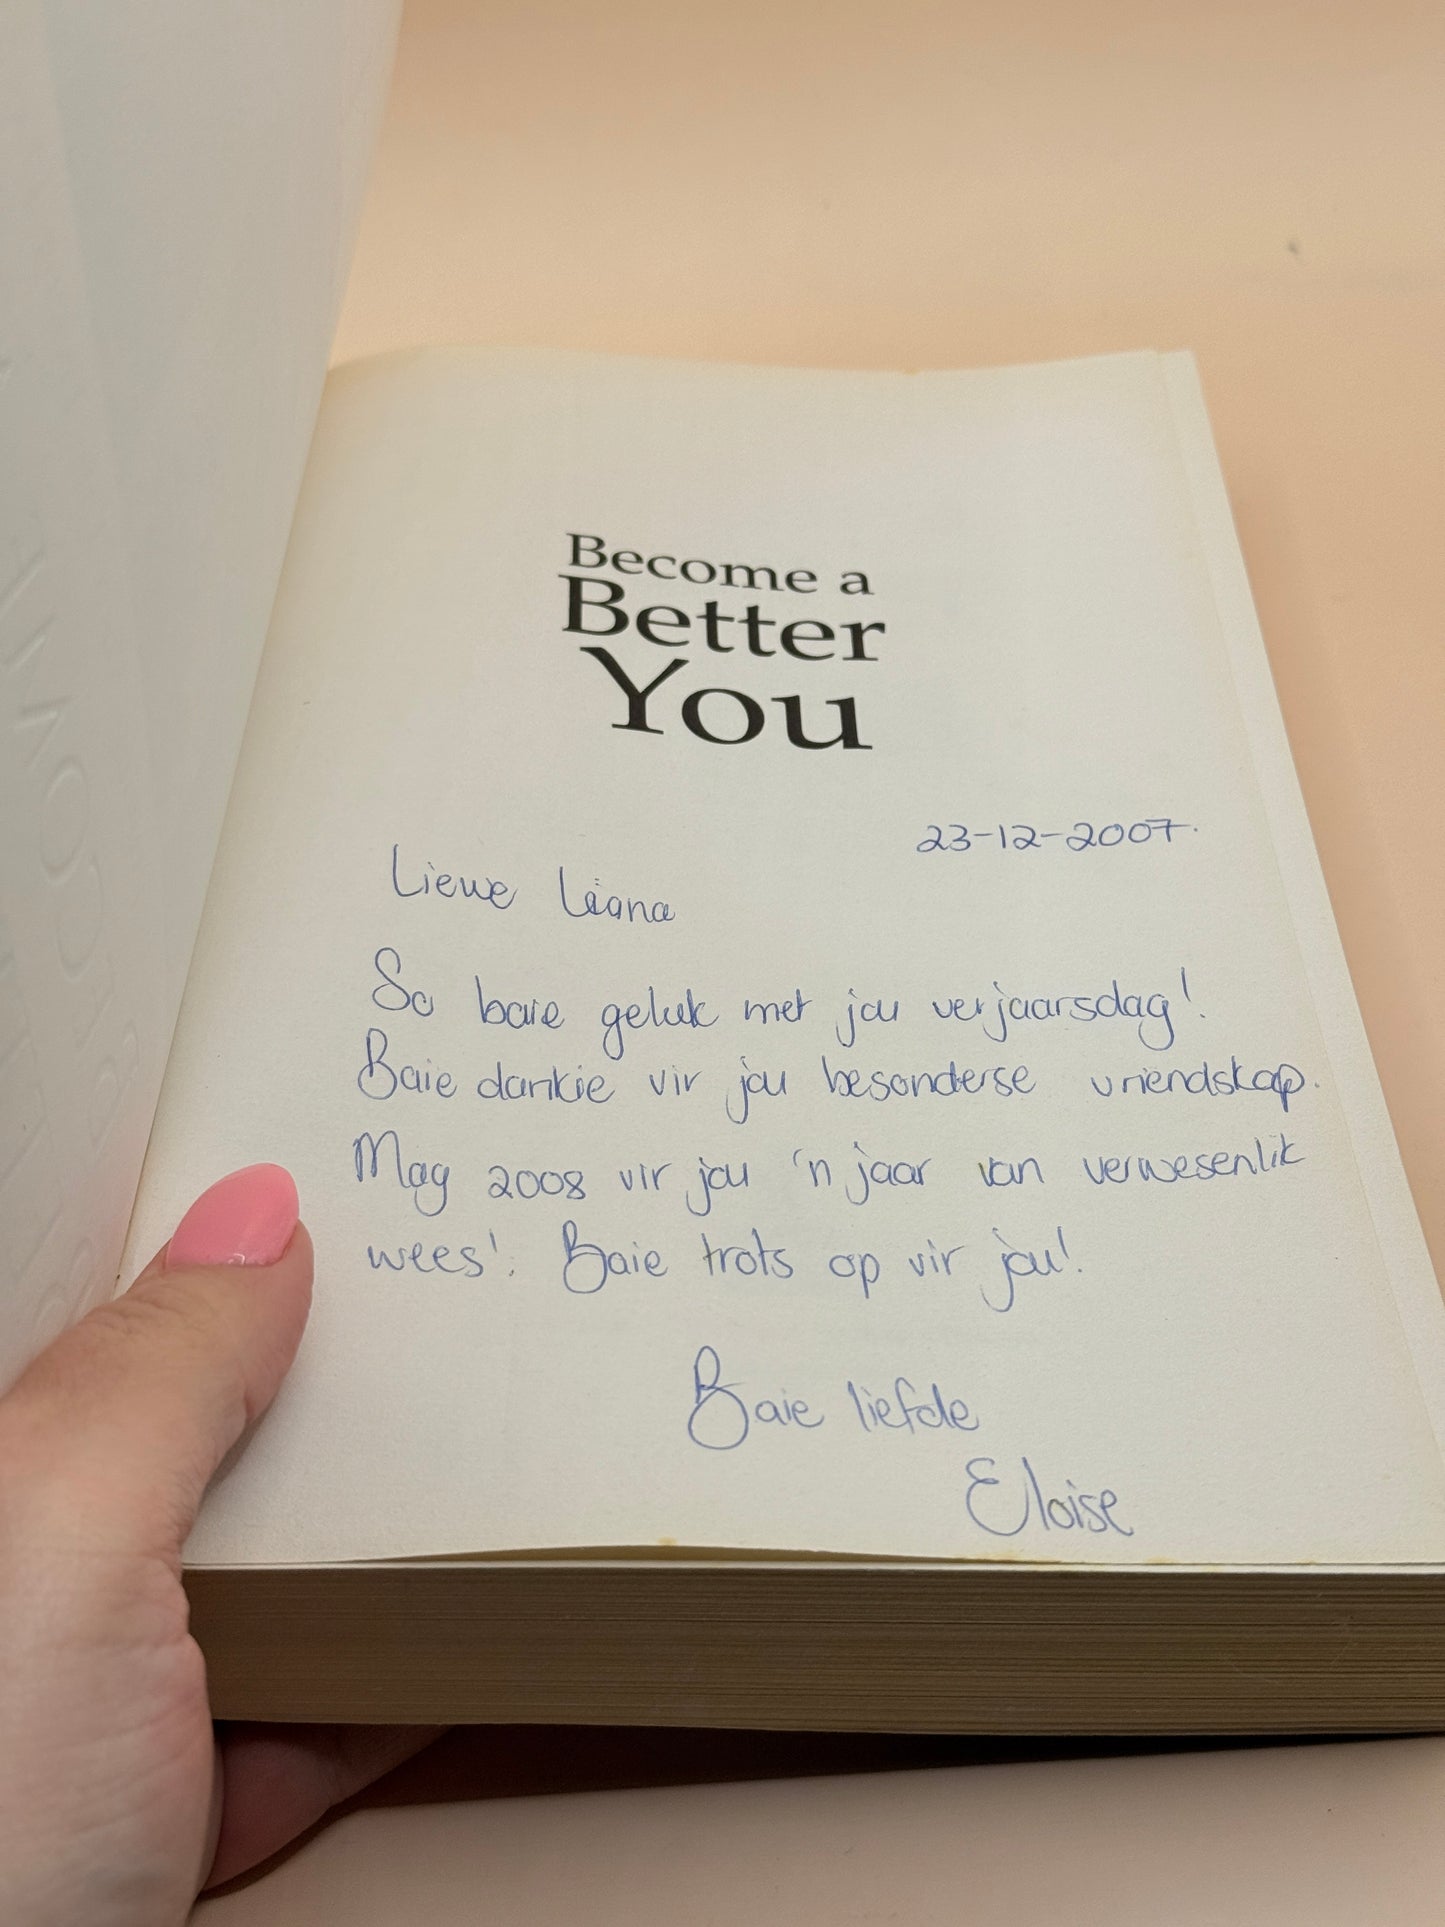 Become a
Better
You
23-12-2007.
Liewe Leana
So baie geluk met jou verjaarsdag!
Baie dankie vir jou besonderse vriendskap.
Mag 2008 vir jou 'n jaar van verwesenlik
wees! Baie trots op vir jou!
Baie liefde
Eloise